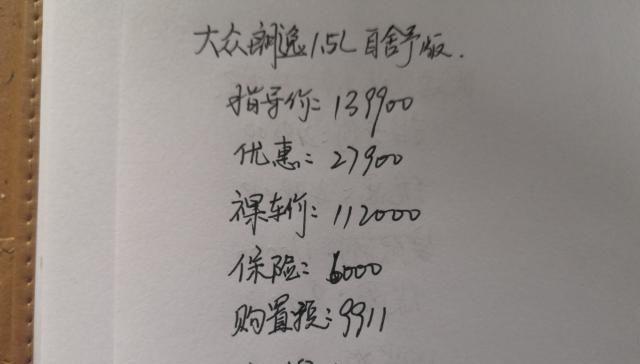 大众朗逸1.5L自舒版.
指导价:139900
优惠:27900
裸车价:112000
保险:6000
购置税:9911